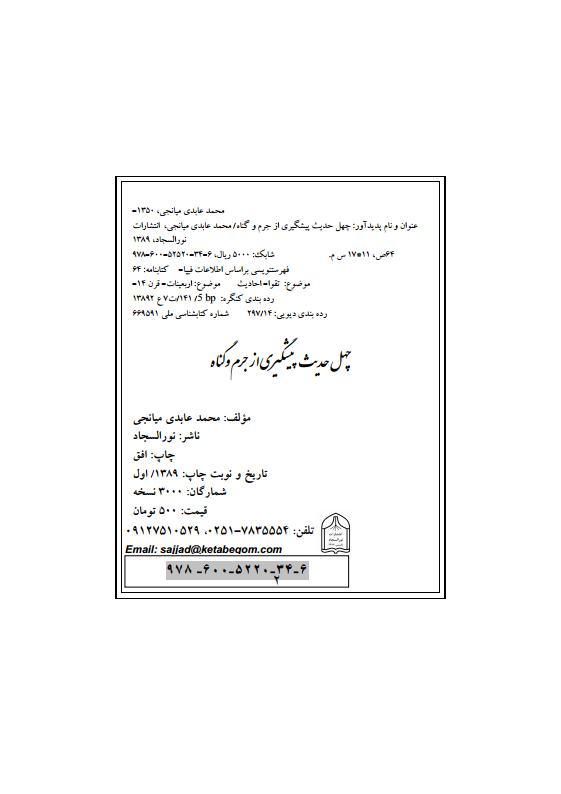 محمد عابدی میانجی، ۱۳۵۰-
عنوان و نام پدیدآور: چهل حدیث پیشگیری از جرم و گناه/ محمد عابدی میانجی، انتشارات
نورالسجاد، ۱۳۸۹
۶۴ص، ۱۱*۱۷ س م. شابک: ۵۰۰۰ ریال، ۶-۳۴-۵۲۵۲۰-۶۰۰-۹۷۸
فهرستنویسی براساس اطلاعات فیپا- کتابنامه: ۶۴
موضوع: تقوا- احادیث موضوع: اربعینات- قرن ۱۴-
رده بندی کنگره: 5 bp/ ۱۴۱/ت۷ ع ۱۳۸۹۲
رده بندی دیویی: ۲۹۷/۱۴ شماره کتابشناسی ملی ۶۶۹۵۹۱
چهل حدیث پیشگیری از جرم و گناه
مؤلف: محمد عابدی میانجی
ناشر: نورالسجاد
چاپ: افق
تاریخ و نوبت چاپ: ۱۳۸۹/ اول
شمارگان: ۳۰۰۰ نسخه
قیمت: ۵۰۰ تومان
تلفن: ۷۸۳۵۵۵۴-۰۲۵۱، ۰۹۱۲۷۵۱۰۵۲۹
انتشارات
نورالسجاد
Email: sajjad@ketabeqom.com
۶-۳۴-۵۲۲۰-۶۰۰-۹۷۸
۲